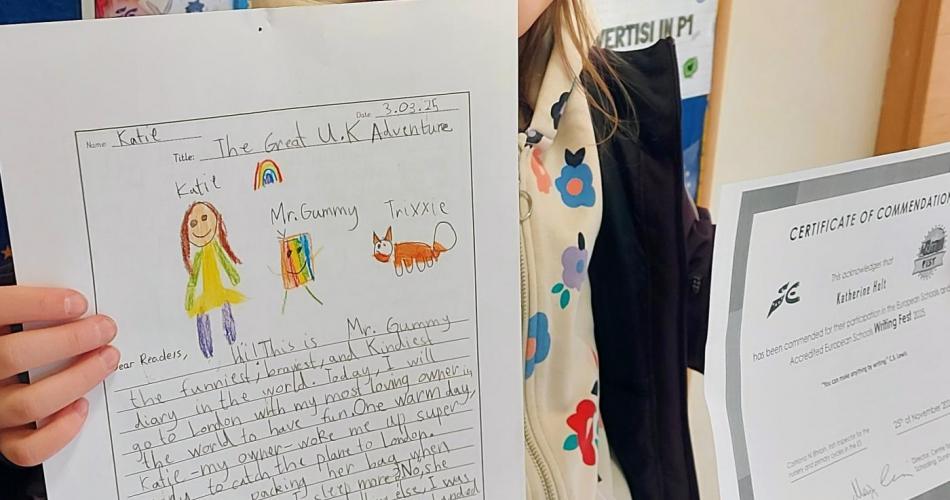 Name: Katie
Date: 3.03.25
Title: The Great U.K Adventure
Katie
Mr. Gummy
Trixxie
ear Readers,
Hi! This is Mr. Gummy
the funniest, bravest, and Kindiest
diary in the world. Today, I will
go to London with my most loving owner in
the world to have fun. One warm day,
Katie-my owner-woke me up super
to catch the plane to London.
packing her bag when
I sleep more? No, she
else, I was
VERTISI IN P1
CERTIFICATE OF COMMENDATION
This acknowledges that
Katherine Holt
has been commended for their participation in the European Schools and
Accredited European Schools Writing Fest 2025.
"You can make anything by writing." C.S. Lewis
25th of November 202
FEST